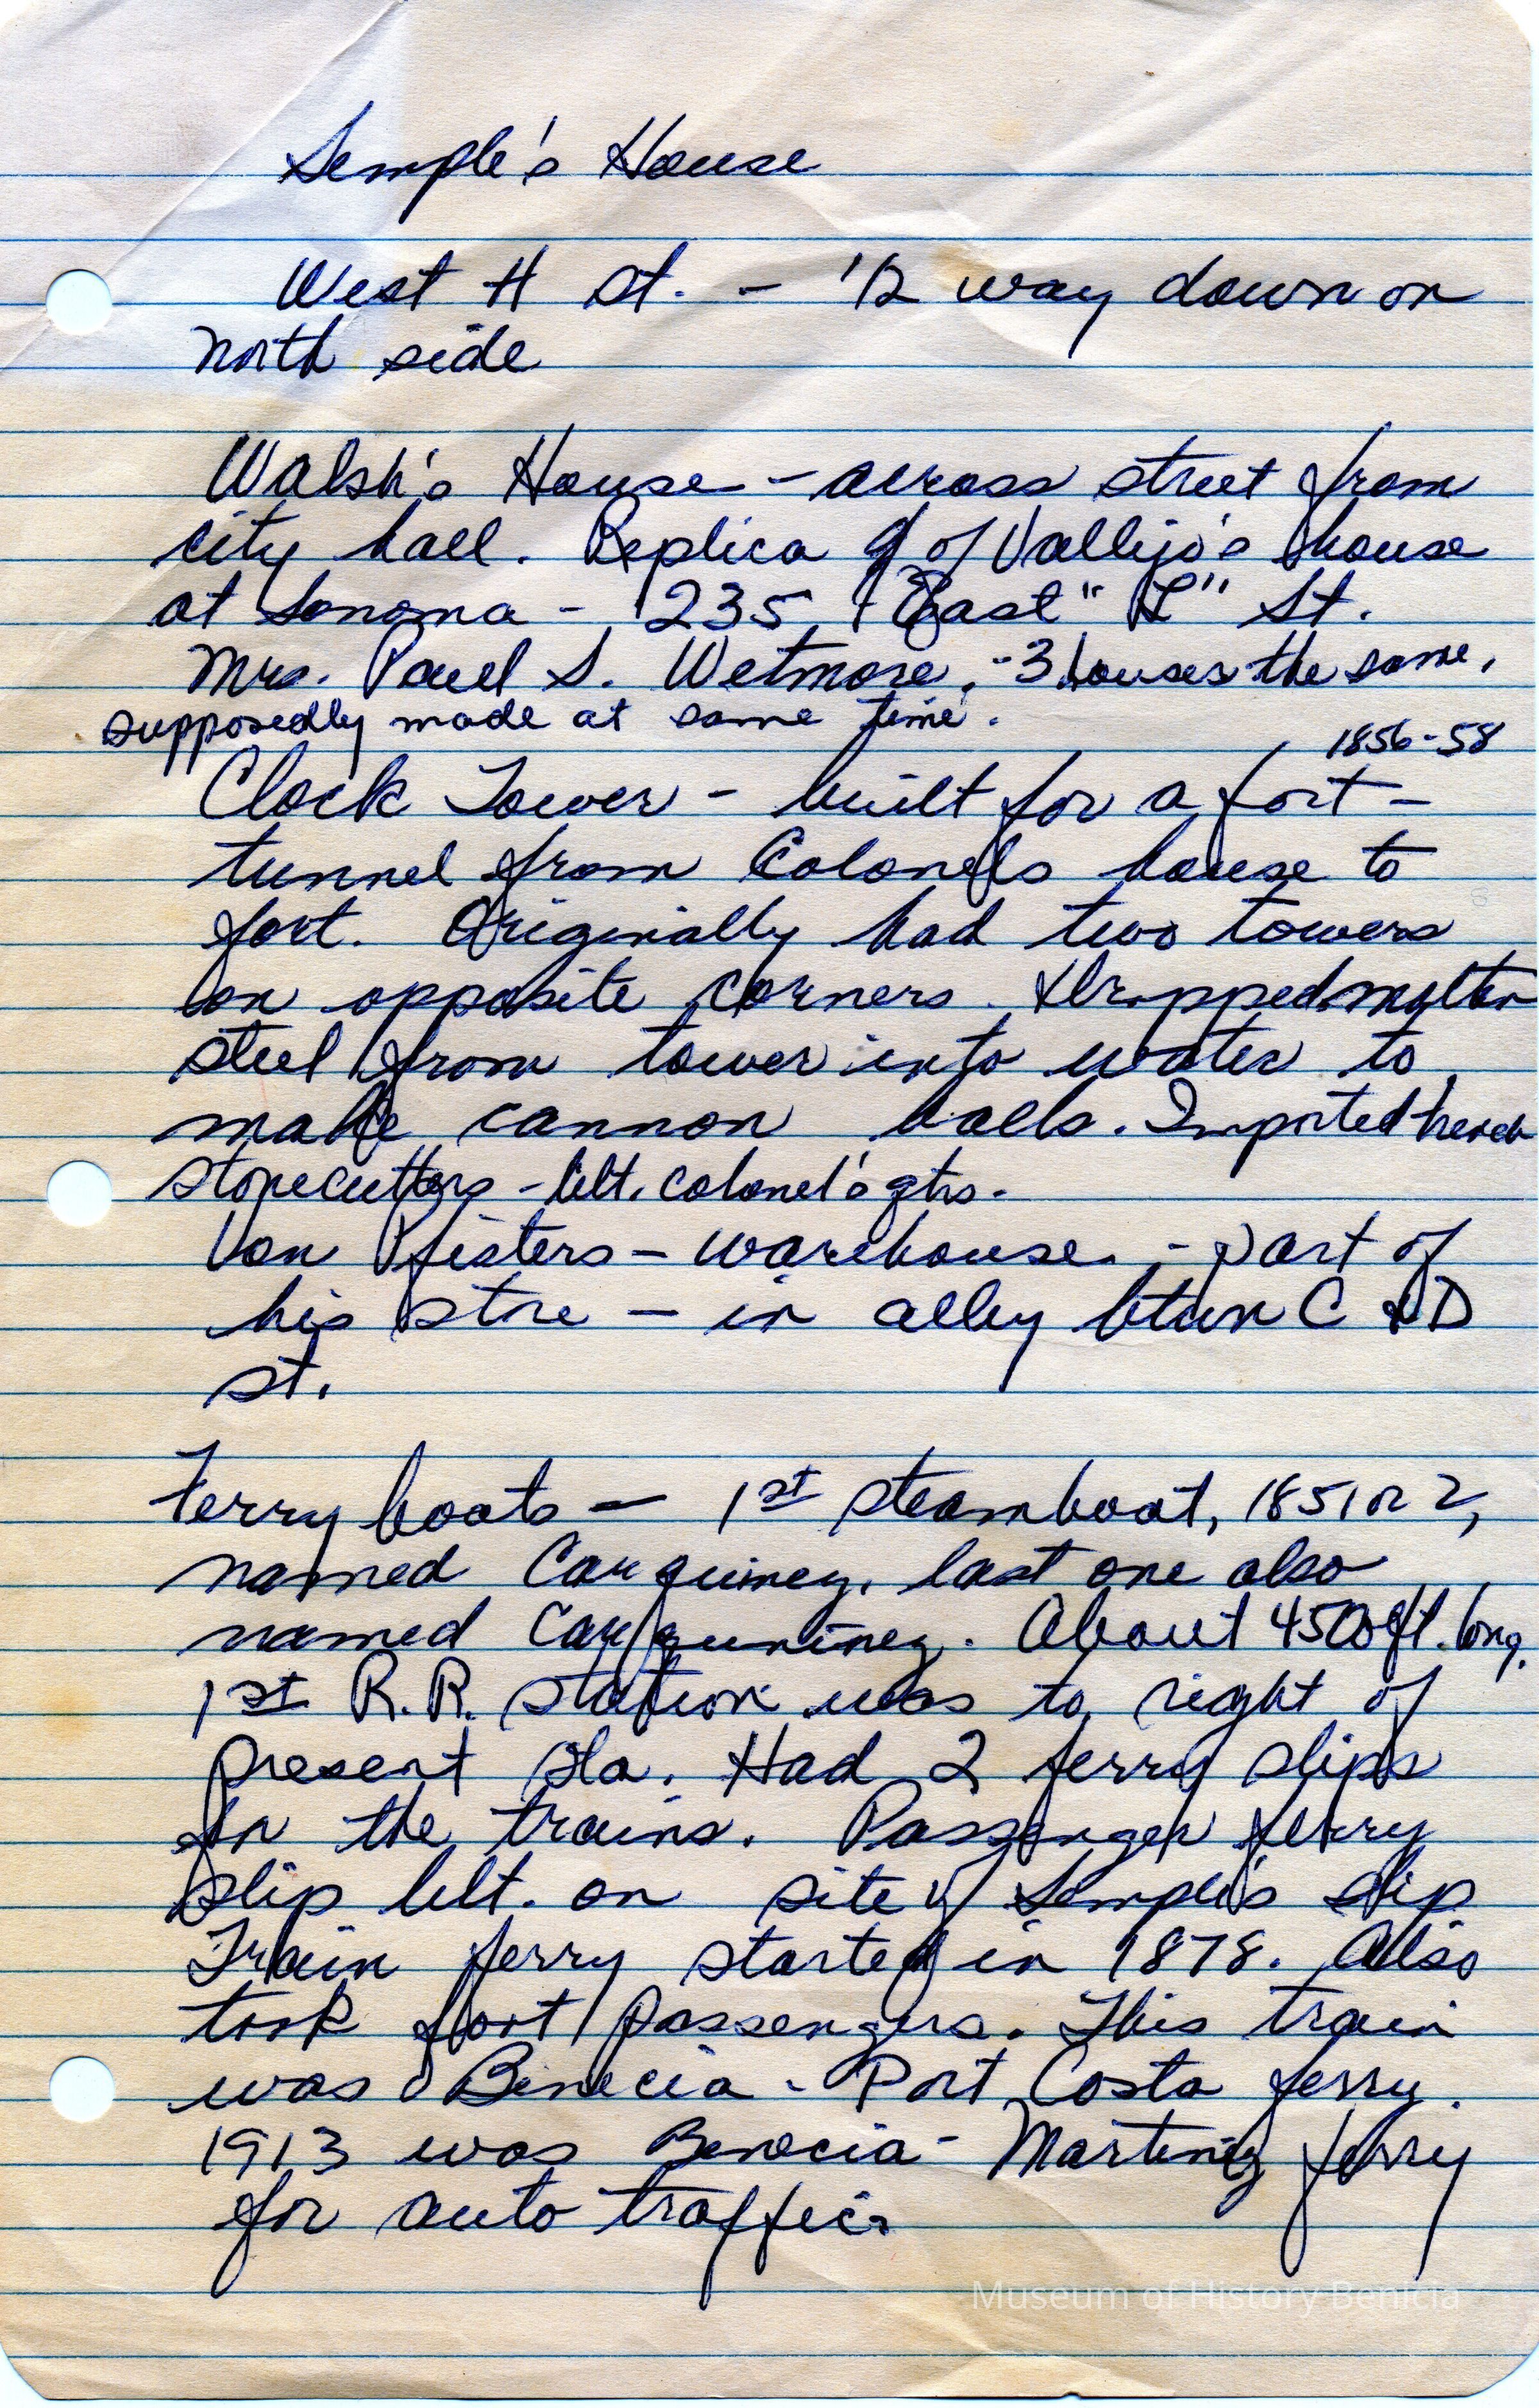 Semple's House
West H St. - 1/2 way down on
north side
Walsh's House - across street from
city hall. Replica of Vallejo's house
at Sonoma - 235 East "L" St.
Mrs. Paul S. Wetmore, - 3 houses the same,
supposedly made at same time.
1856-58
Clock Tower - built for a fort -
tunnel from Colonels house to
fort. Originally had two towers
on opposite corners. Dropped molten
steel from tower into water to
make cannon balls. Imported french
stonecutters - blt. colonel's qtrs.
Von Pfisters - warehouse - part of
his store - in alley btwn C & D
st.
Ferry boats - 1st steamboat, 1851 or 2,
named Carquinez, last one also
named Carquinez. About 450 ft. long.
1st R.R. station was to right of
present sta. Had 2 ferry slips
for the trains. Passenger ferry
slip blt. on site of Semple's slip
Train ferry started in 1878. Also
took foot passengers. This train
was Benecia - Port Costa ferry.
1913 was Benecia - Martinez ferry
for auto traffic.
Museum of History Benicia